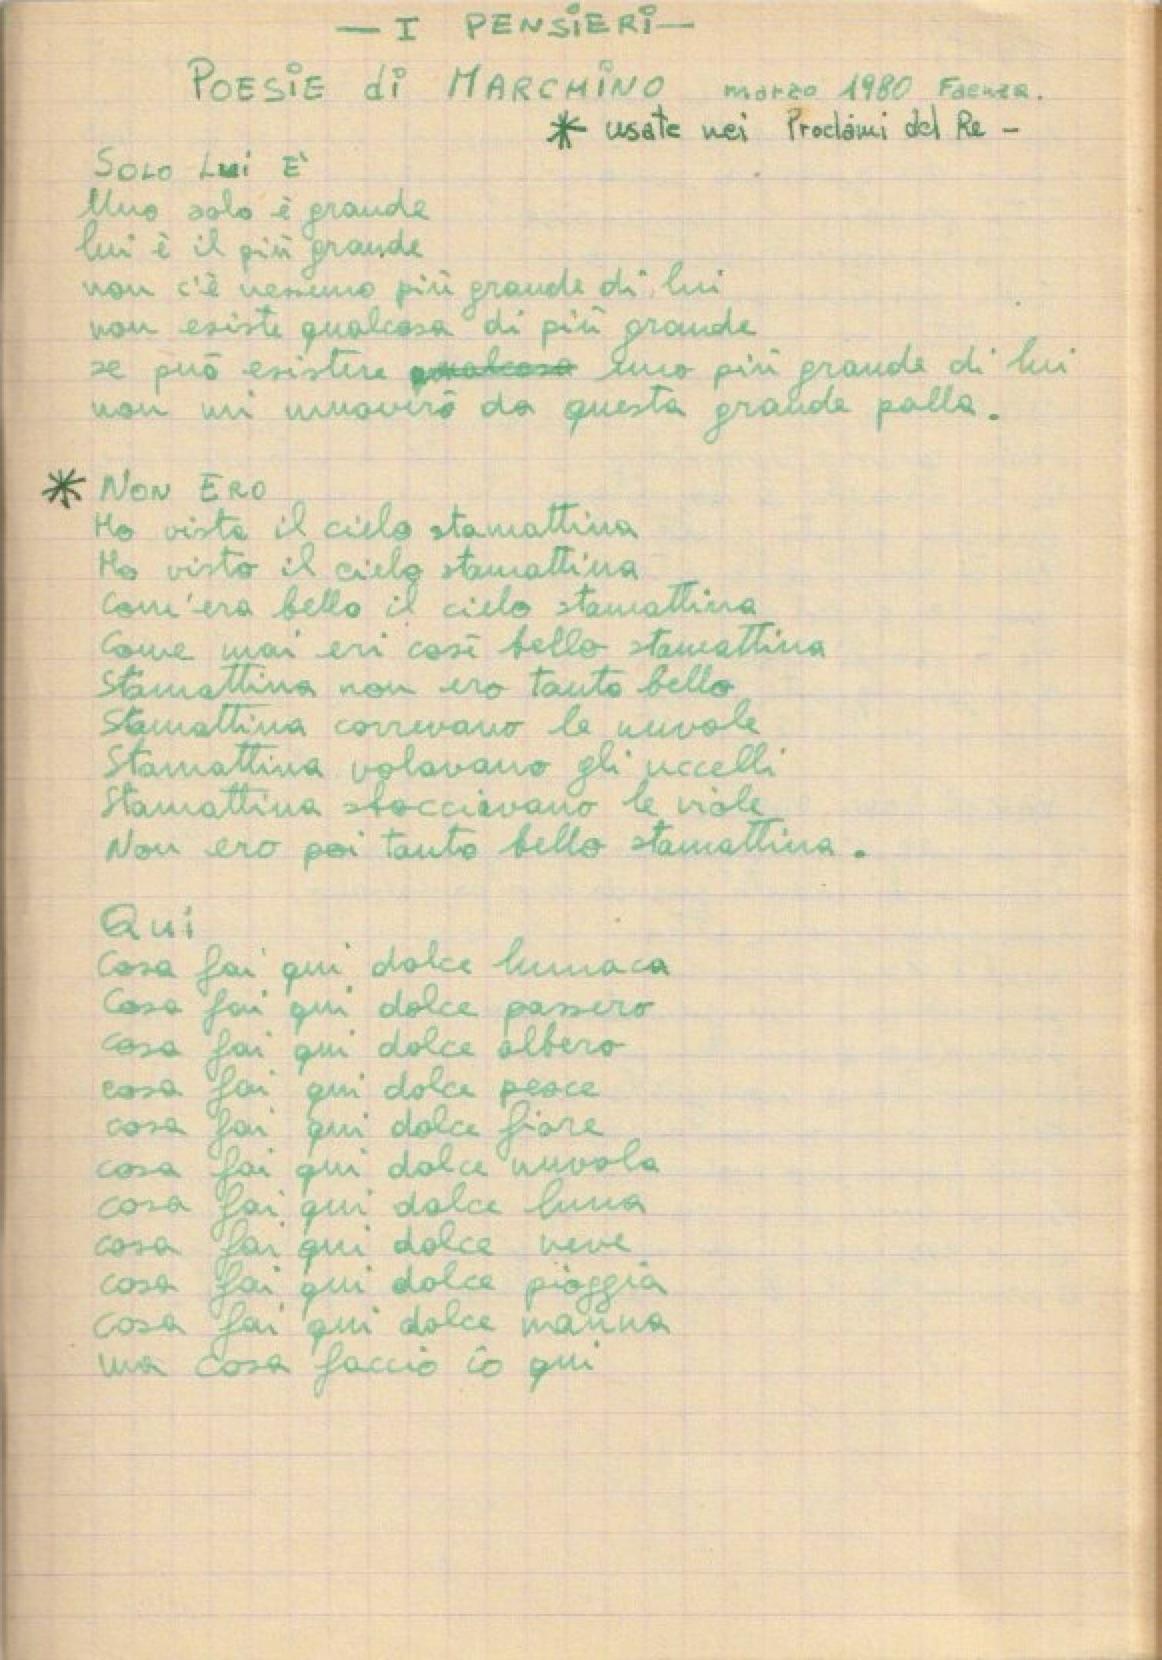 — I PENSiERi —
POESiE di MARCHiNO marzo 1980 Faenza.
* usate nei Proclami del Re -
SOLO Lui E'
Uno solo è grande
lui è il più grande
non c'è nessuno più grande di lui
non esiste qualcosa di più grande
se può esistere qualcosa uno più grande di lui
non mi muoverò da questa grande palla.
* NON ERO
Ho visto il cielo stamattina
Ho visto il cielo stamattina
Com'era bello il cielo stamattina
Come mai eri così bello stamattina
Stamattina non ero tanto bello
Stamattina correvano le nuvole
Stamattina volavano gli uccelli
Stamattina sbocciavano le viole
Non ero poi tanto bello stamattina.
Qui
Cosa fai qui dolce lumaca
Cosa fai qui dolce passero
cosa fai qui dolce albero
cosa fai qui dolce pesce
cosa fai qui dolce fiore
cosa fai qui dolce nuvola
cosa fai qui dolce luna
cosa fai qui dolce neve
cosa fai qui dolce pioggia
cosa fai qui dolce manna
ma cosa faccio io qui